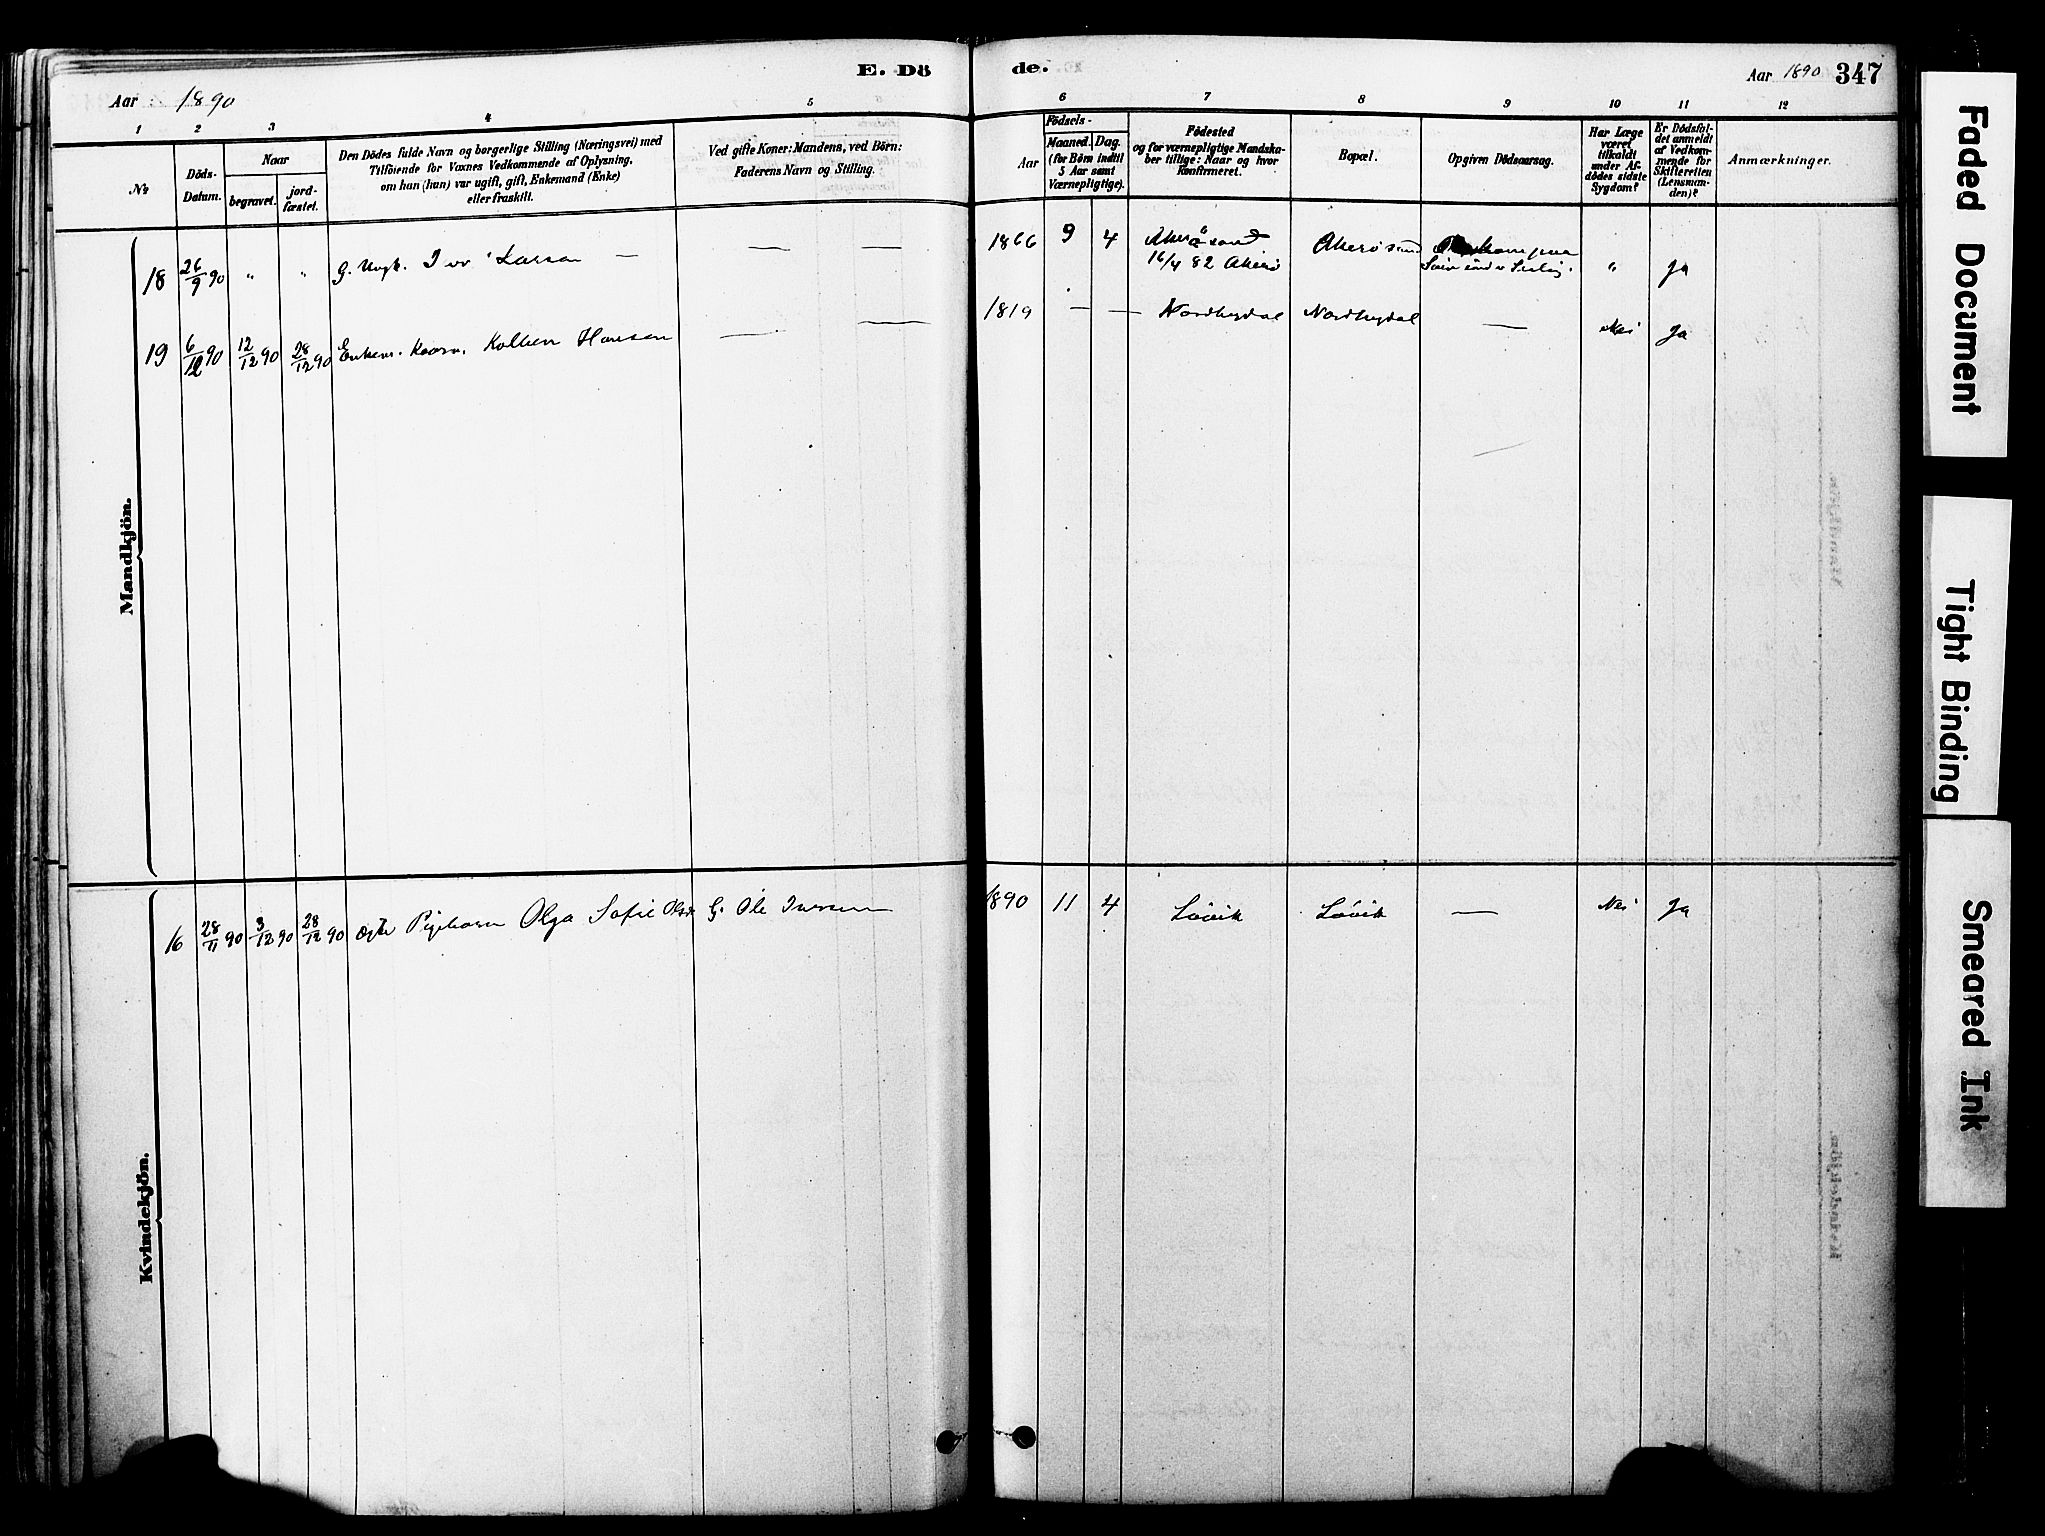 E. Dö de.
Aar 1890
Aar 1890 347
1 2 3 4 5 6 7 8 9 10 11 12
No
Döds-
Datum.
Naar
begravet.
jord-
fæstet.
Den Dödes fulde Navn og borgerlige Stilling (Næringsvei) med
Tilföiende for Voxnes Vedkommende af Oplysning,
om hun (han) var ugift, gift, Enkemand (Enke)
eller fraskilt.
Ved gifte Koner: Mandens, ved Börn:
Faderens Navn og Stilling.
Födsels-
Aar
Maaned.
Dag.
(for Börn indtil
5 Aar samt
Værnepligtige).
Födested
og for værnepligtige Mandska-
ber tillige: Naar og hvor
Konfirmeret.
Bopæl.
Opgiven Dödsaarsag.
Har Læge
været
tilkaldt
under Af-
dödes sidste
Sygdom?
Er Dödsfal-
det anmeldt
af Vedkom-
mende for
Skifteretten
(Lensman-
den)?
Anmærkninger.
Mandkjön.
18 26/9 90 " " G. Ungk. Iver Larsen — — — 1866 9 4 Akerösund Akerösund
16/4 82 Akerö " Ja
19 6/12 90 12/12 90 28/12 90 Enkem. Kaarm. Kolben Hansen — — 1819 — — Nordhegdal Nordhegdal — Nei Ja
Kvindekjön.
16 28/11 90 3/12 90 28/12 90 ægte Pigebarn Olga Sofie Olsd. G. Ole Iversen 1890 11 4 Lövik Lövik — Nei Ja
Faded Document
Tight Binding
Smeared Ink